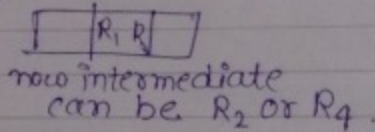 R₁ R
now intermediate
can be R₂ or R₄.